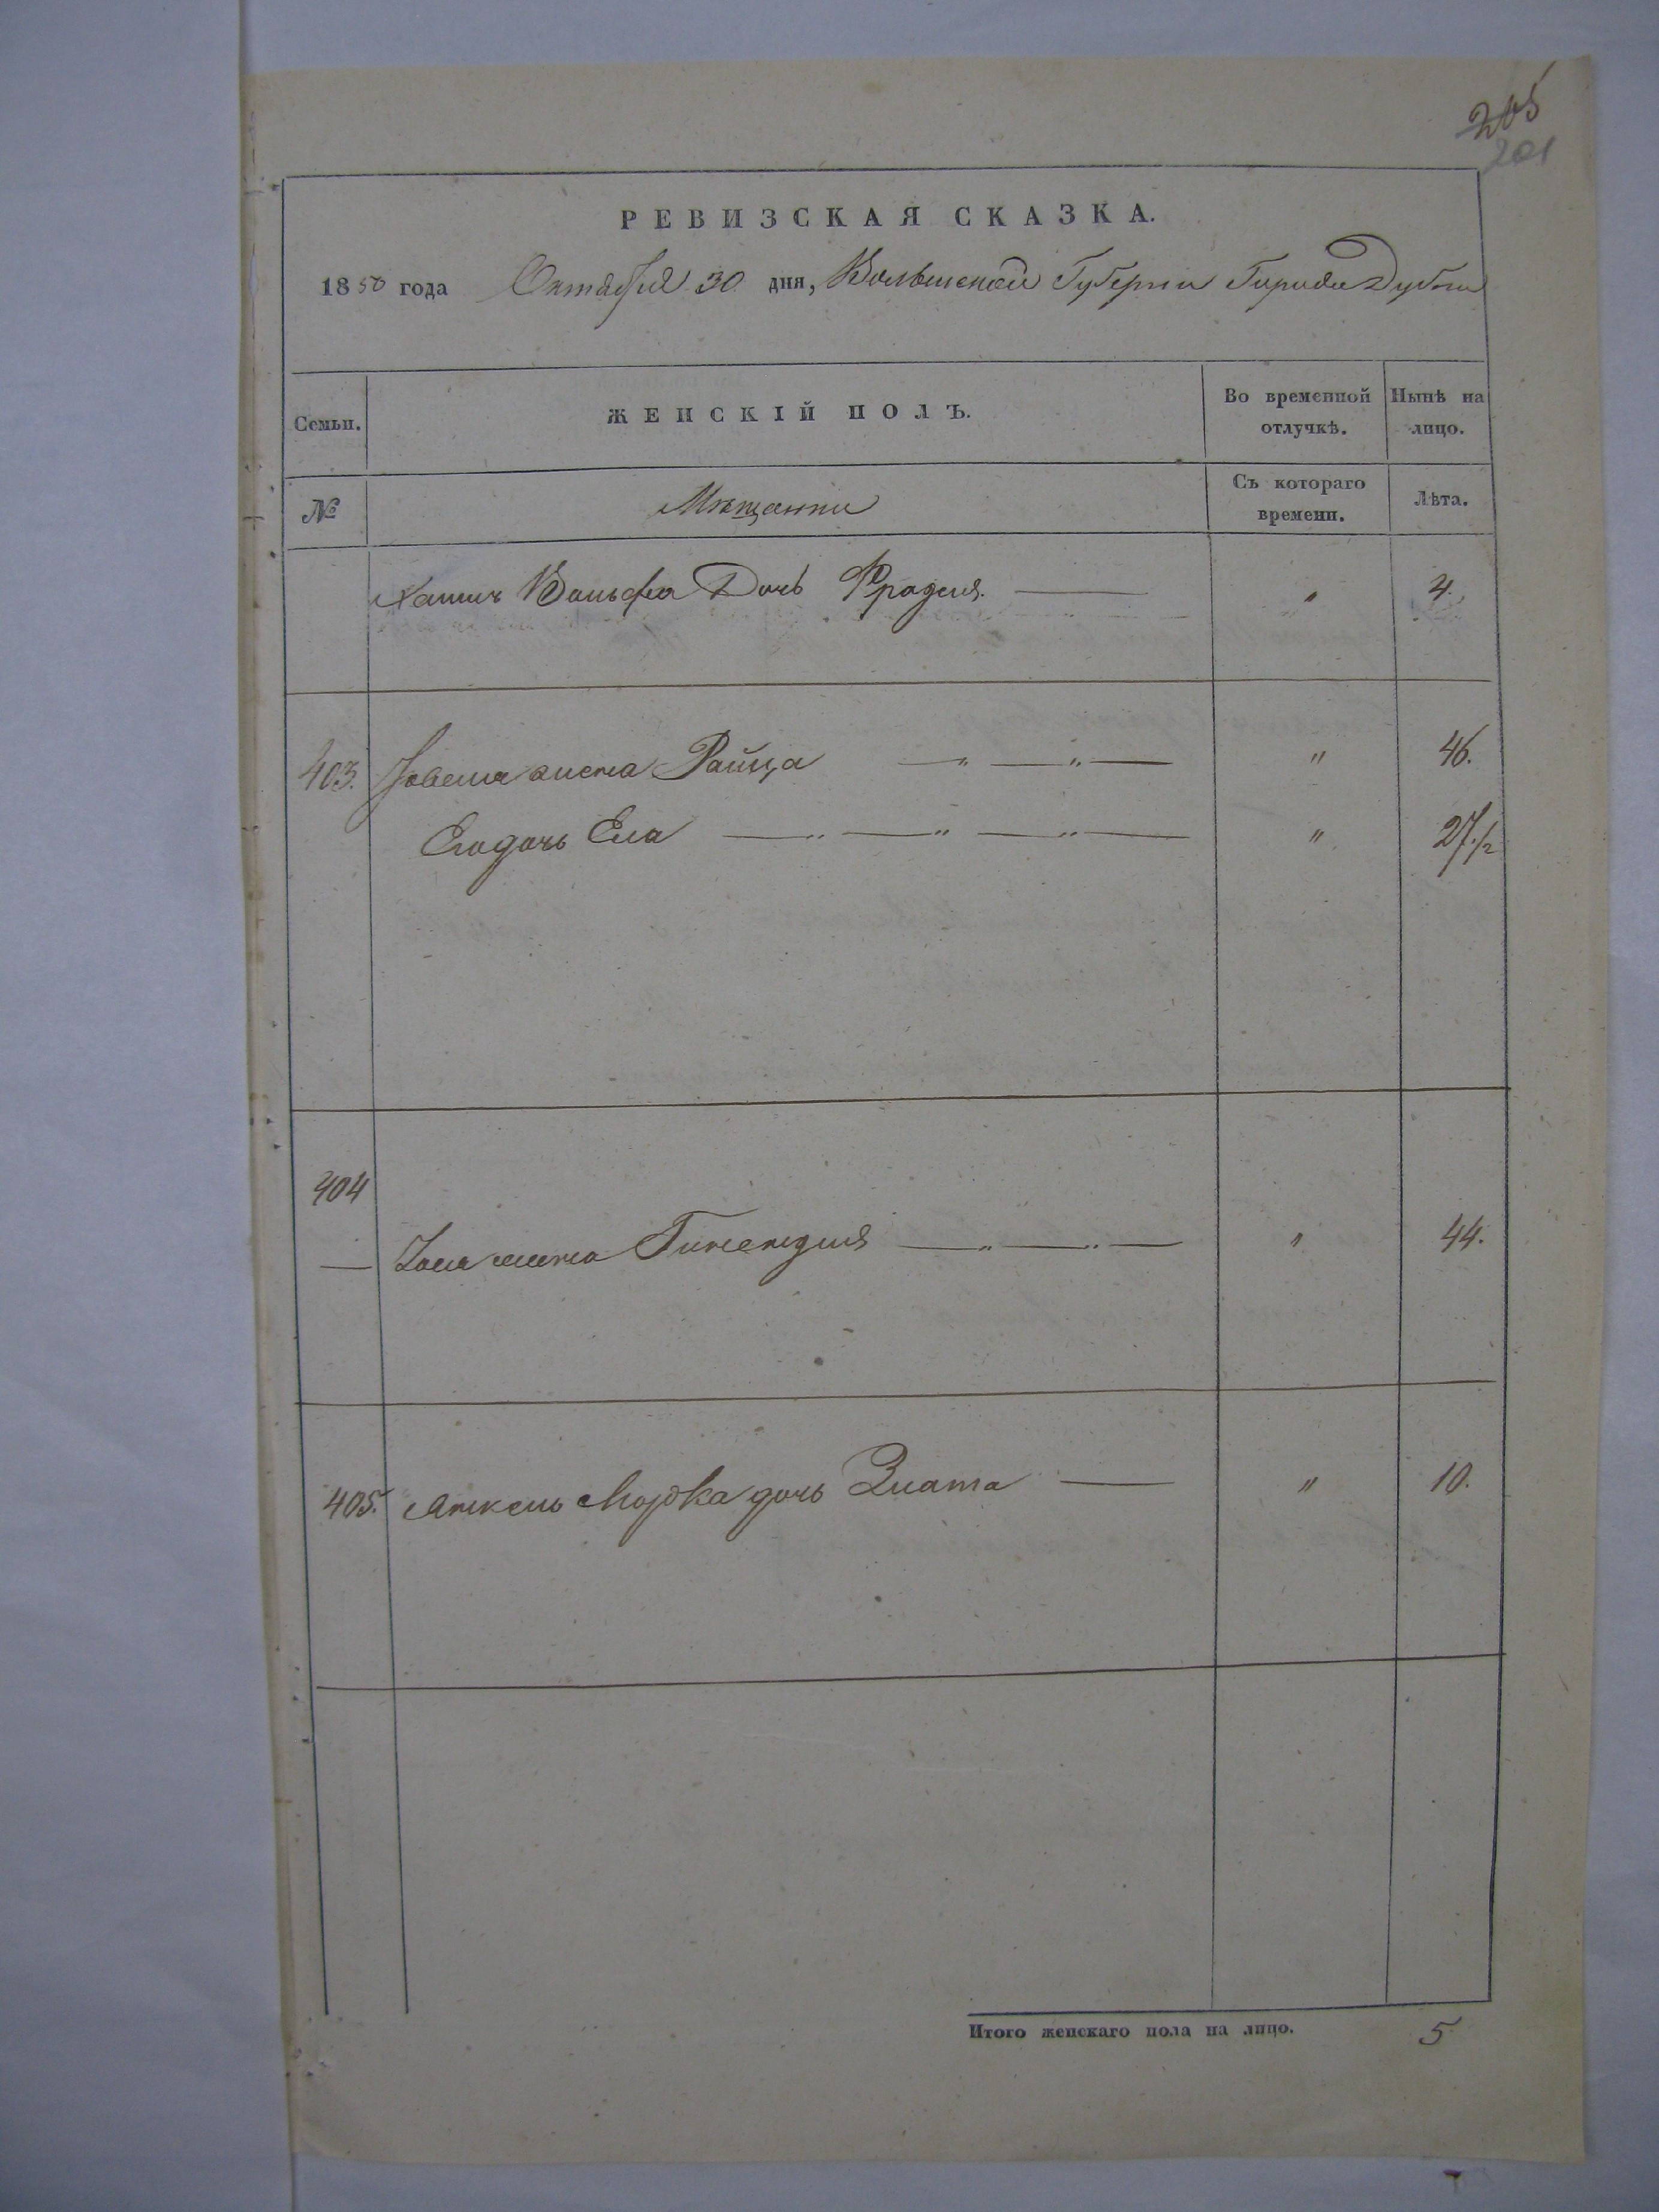 205
201
РЕВИЗСКАЯ СКАЗКА.
1850 года Октября 30 дня, Волынской Губернии Города Дубна
Семьи. ЖЕНСКІЙ ПОЛЪ. Во временной отлучкѣ. Нынѣ на лицо.
№ Мѣщанки Съ котораго времени. Лѣта.
Вольфа Дочь Фрадля. — " 4.
403. жена Райца — " — " — " 46.
Его дочь Ела — " — " — " — " 27 1/2
404
— жена — " — " — " 44.
405. Янкель Морка дочь Злата — " 10.
Итого женскаго пола на лицо. 5